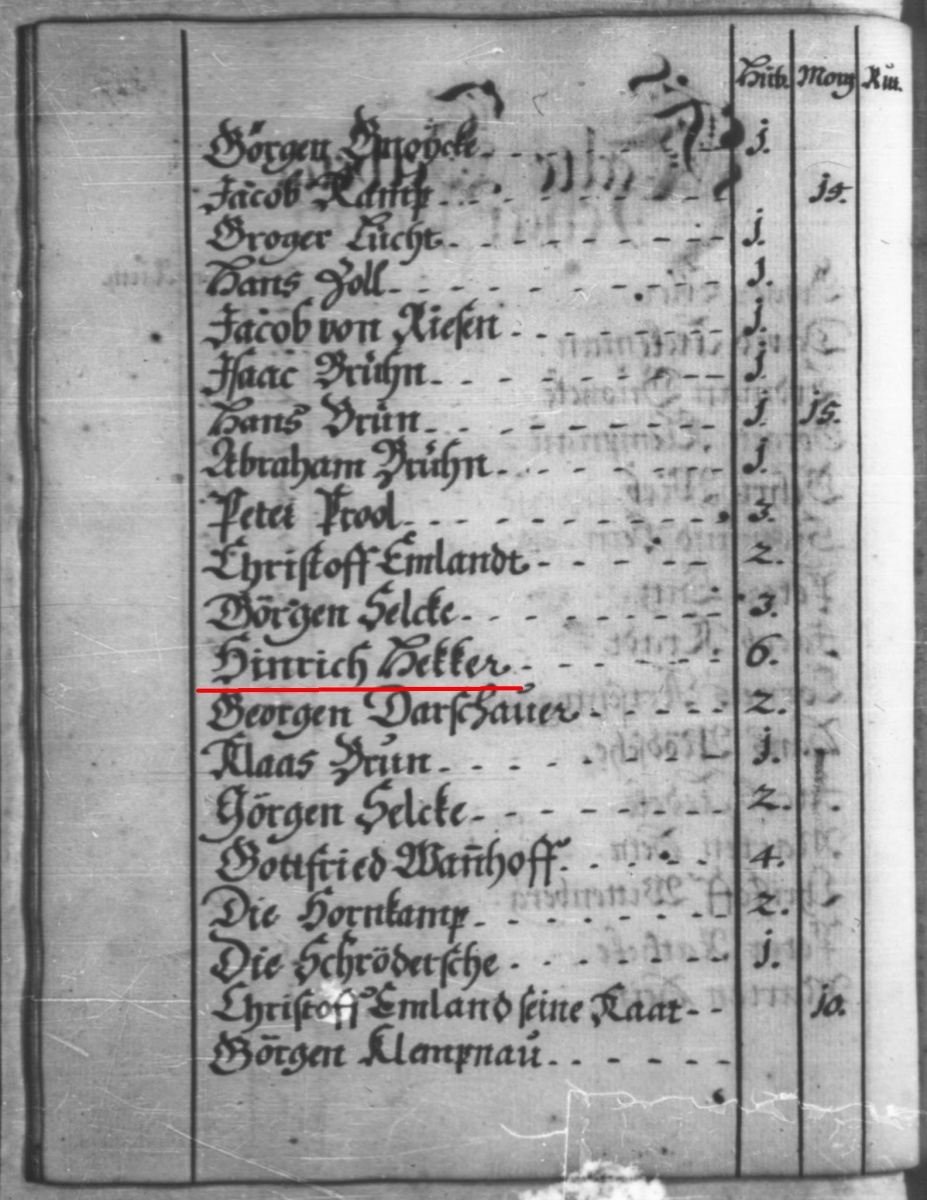 Hüb. Morg Rut.
Görgen Gnoycke j.
Jacob Kamp 15.
Groger Lücht j.
Hans Zoll j.
Jacob von Riesen j.
Isaac Brühn j.
Hans Brün j. 15.
Abraham Brühn j.
Peter Prool 3.
Christoff Emlandt 2.
Görgen Selcke 3.
Hinrich Hekker 6.
Georgen Darschauer 2.
Klaas Brun j.
Görgen Selcke 2.
Gottfried Wan̄hoff 4.
Die Hornkamp 2.
Die Schrödersche j.
Christoff Emland seine Kaat 10.
Görgen Klempnau